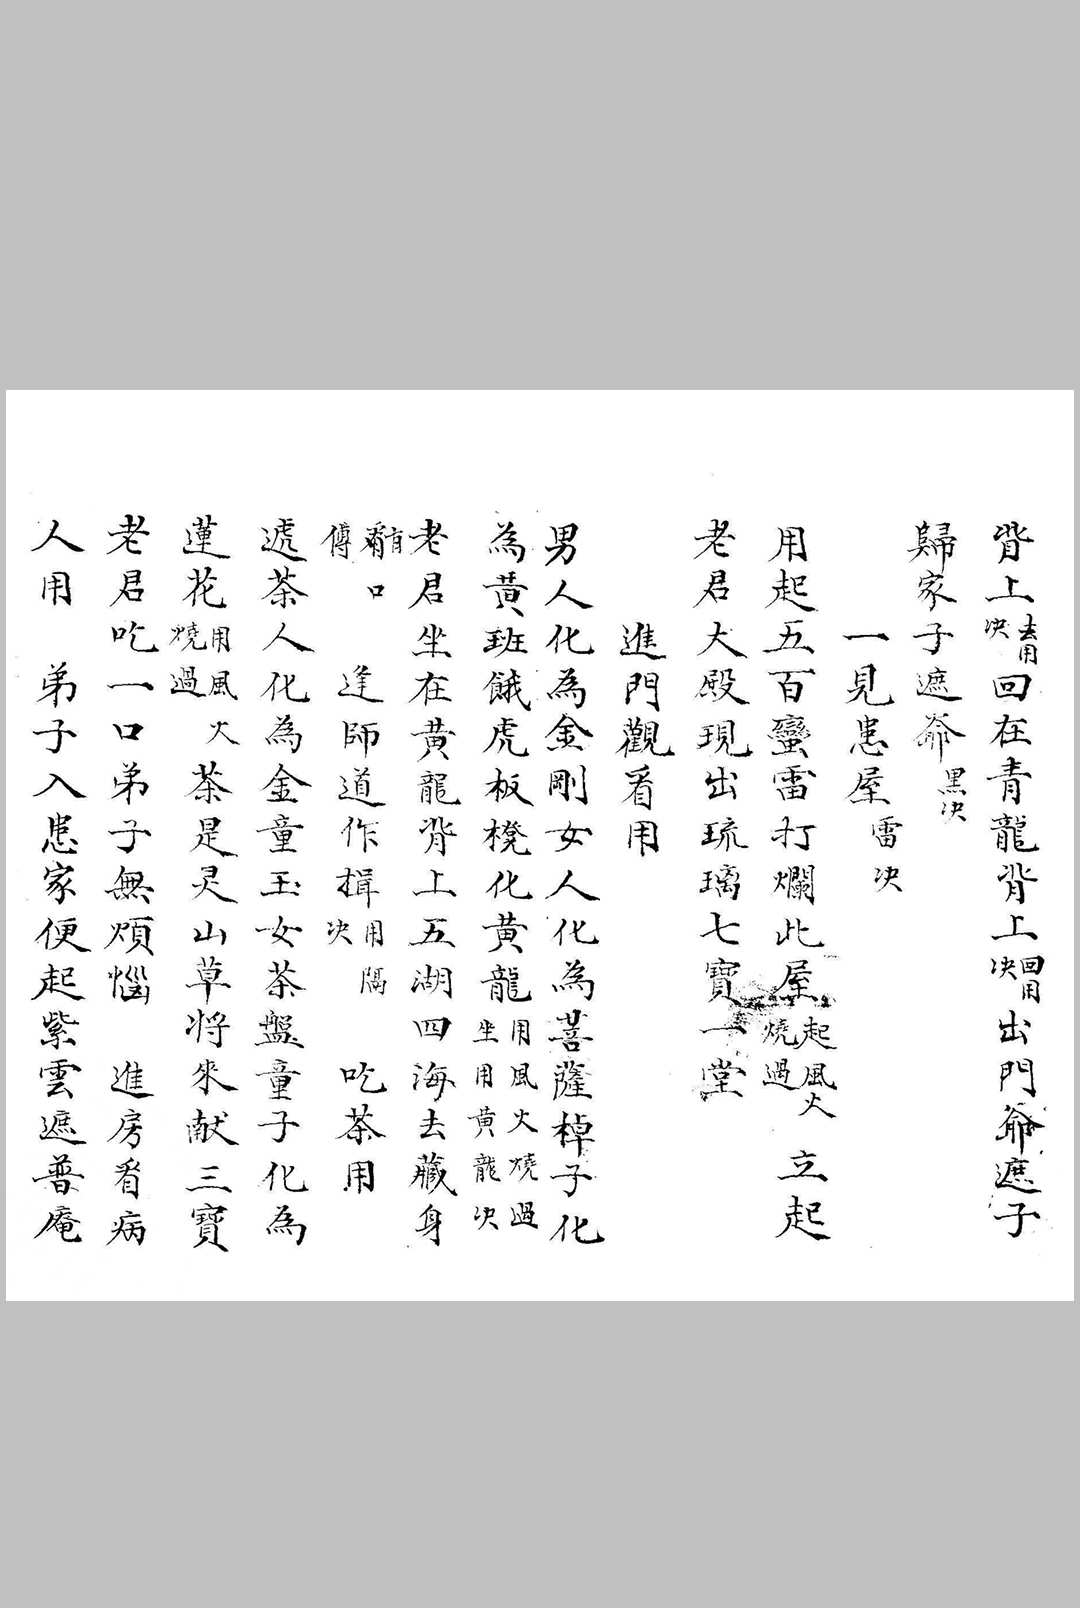 背上去用决回在青龍背上回用决出門爺遮子
歸家子遮爺黑决
一見患屋雷决
用起五百蠻雷打爛此屋起風火燒過立起
老君大殿現出琉璃七寶一堂
進門觀看用
男人化為金剛女人化為菩薩棹子化
為黄班餓虎板櫈化黄龍用風火燒過坐用黄龍决
老君坐在黄龍背上五湖四海去藏身
有看口傳逢師道作揖用隔决吃茶用
遞茶人化為金童玉女茶盤童子化為
蓮花用風火燒過茶是灵山草将來献三寶
老君吃一口弟子無煩惱進房看病
人用弟子入患家便起紫雲遮普庵